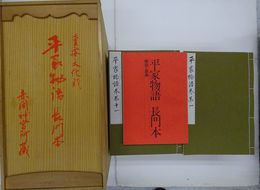 重要文化財
平家物語 長門本
赤間神宮所蔵
平家物語卷第十一
平家物語 長門本
平家物語卷第一